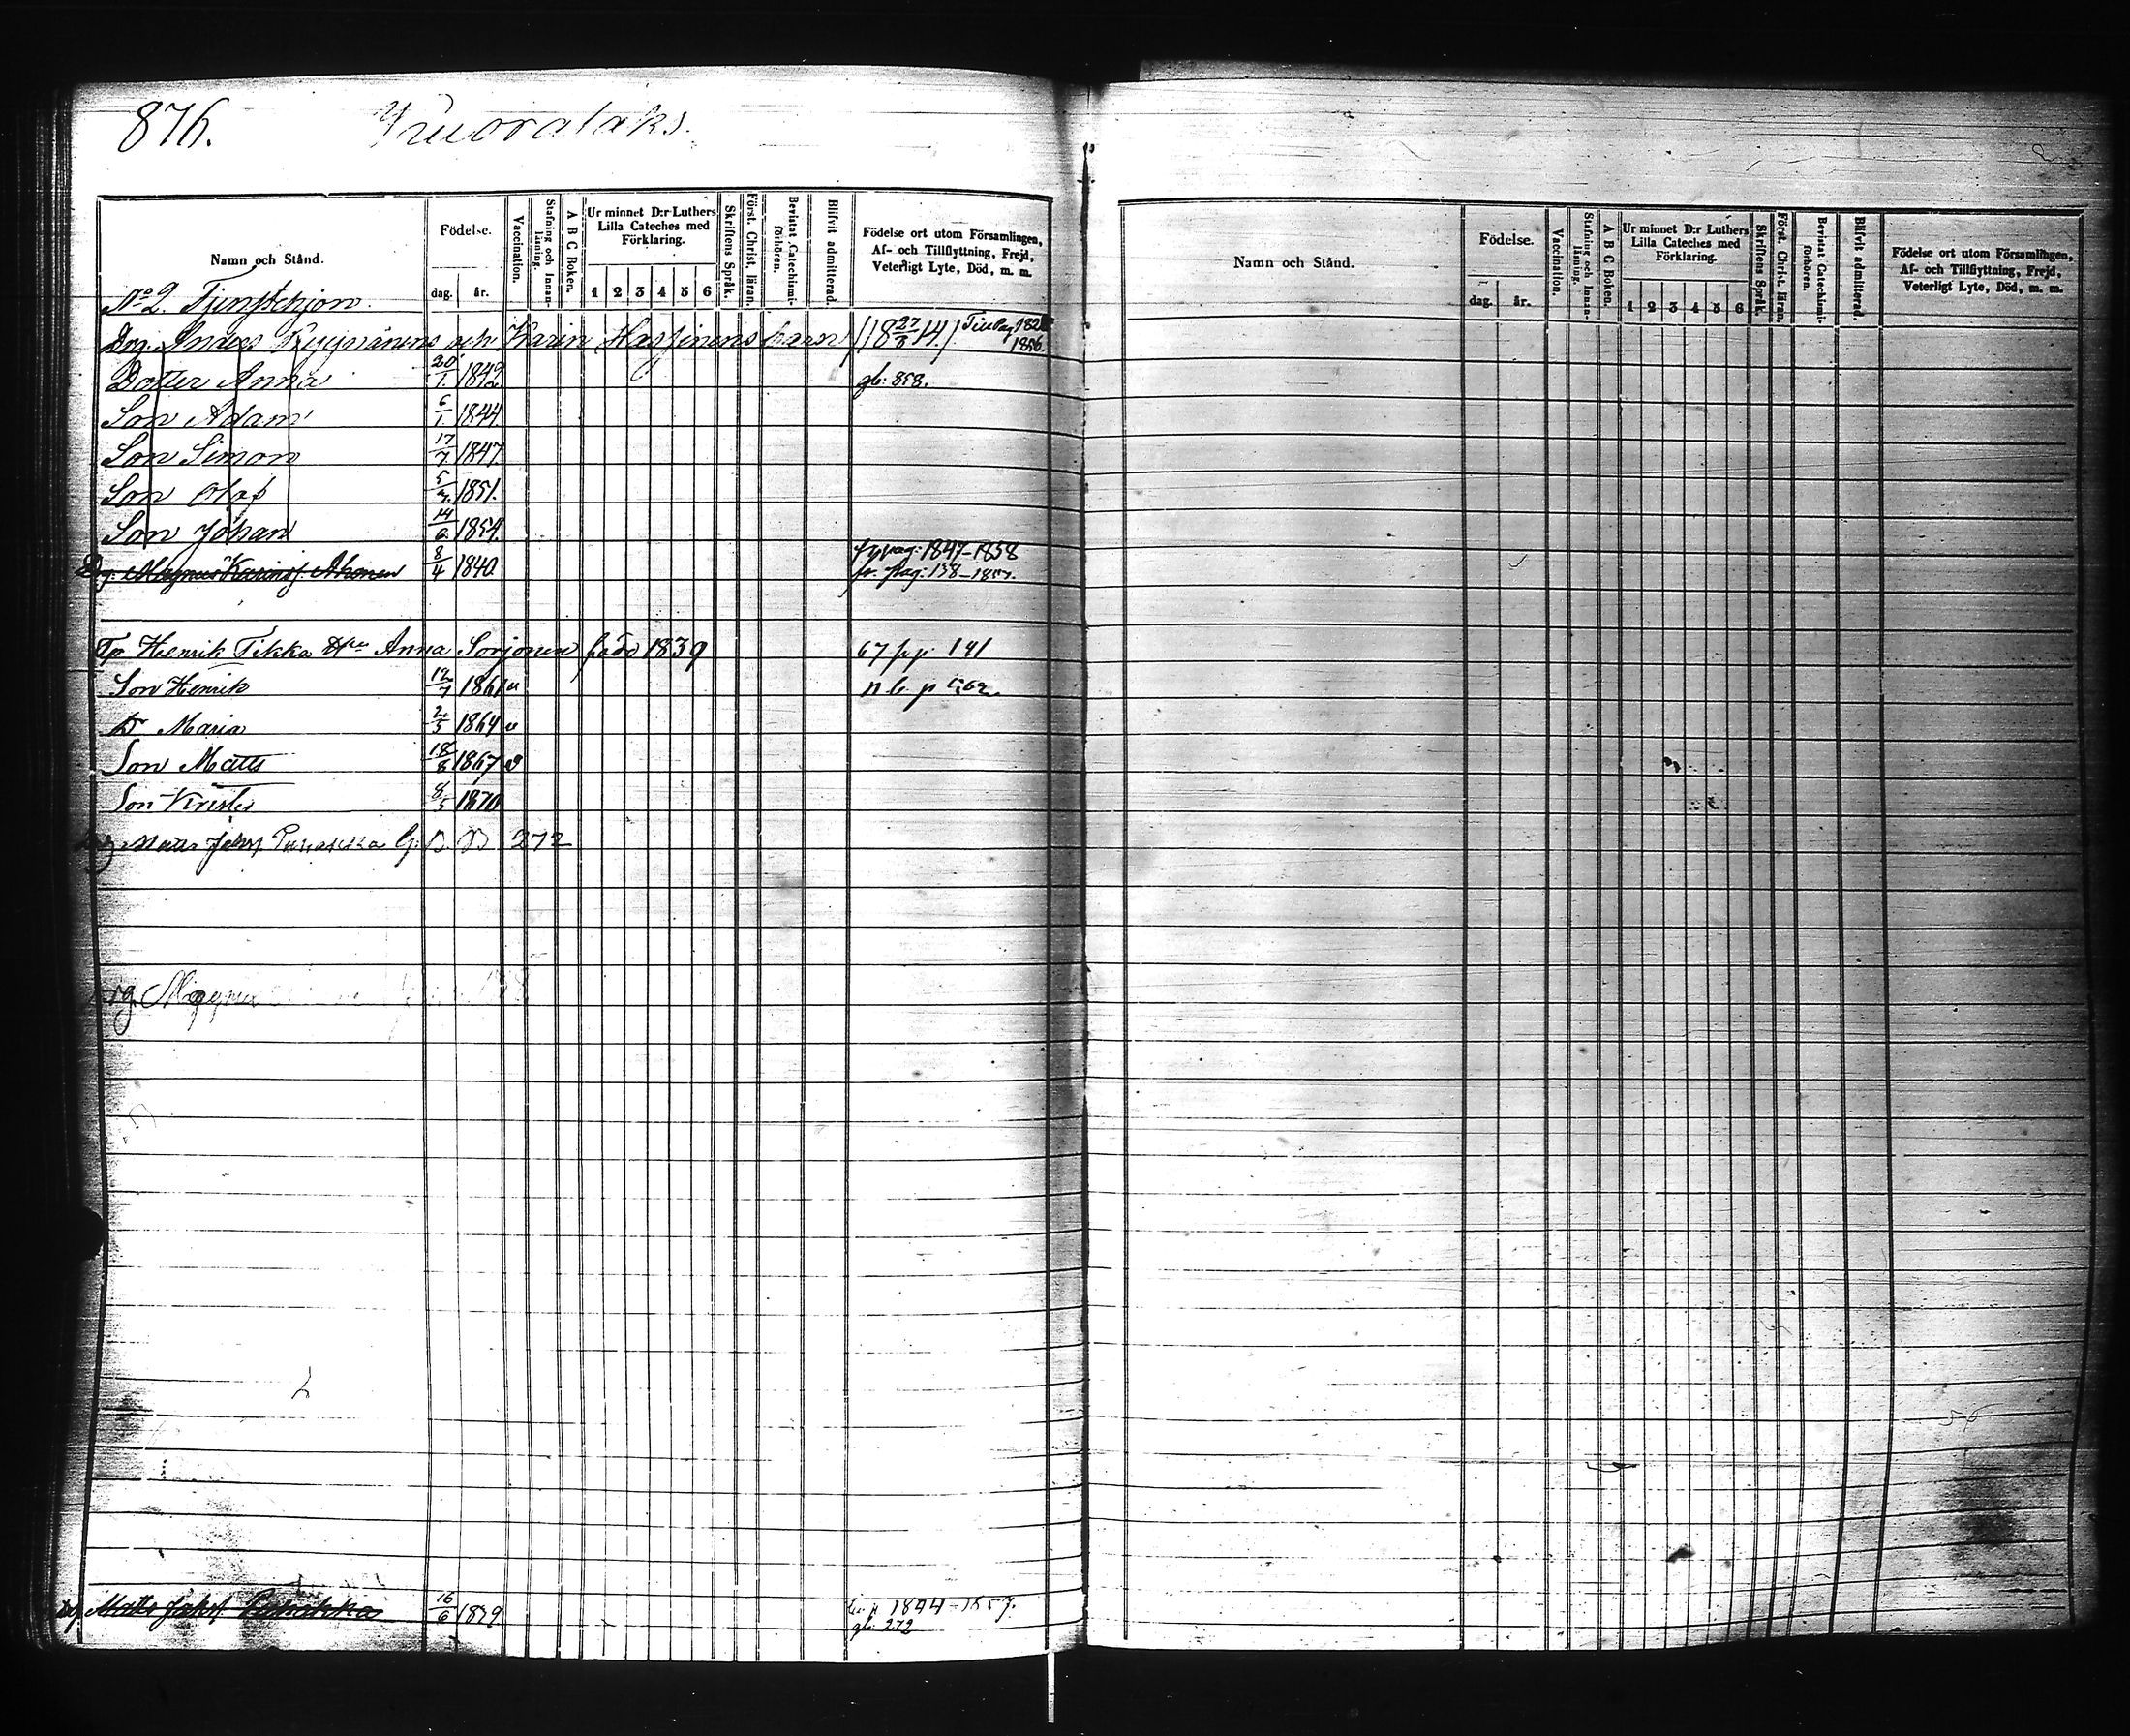 876.
Namn och Stånd.
Födelse.
dag. år.
Vaccination.
Stafning och Innanläsning.
A B C Boken.
Ur minnet D:r Luthers Lilla Cateches med Förklaring.
1 2 3 4 5 6
Skriftens Språk.
Först. Christ. läran.
Bevistat Catechismiförhören.
Blifvit admitterad.
Födelse ort utom Församlingen, Af- och Tillflyttning, Frejd, Veterligt Lyte, Död, m. m.
No 2. Tjenstehjon.
Drg. Anders och Karin barn
Dotter Anna 20/1 1842 gb: 858.
Son Adam 6/1 1844.
Son Simon 17/7 1847.
Son Olof 5/3 1851.
Son Johan 14/6 1854.
Drg. Magnus Karinsf. Ahonen 8/4 1840. pag: 1847–1858
fr. pag: 138–
Henrik Tikka Hu Anna Sorjonen född 1839 67 fr p. 141
Son Henrik 12/7 1861 v n b. p
Dr Maria 2/5 1864 v
Son Matts 18/8 1867 v
Son Krister 8/5 1870
Drg Matts Johsf. G. B. 272
Matts Johsf. 16/6 1839 1844–1857.
gb. 272
Namn och Stånd.
Födelse.
dag. år.
Vaccination.
Stafning och Innanläsning.
A B C Boken.
Ur minnet D:r Luthers Lilla Cateches med Förklaring.
1 2 3 4 5 6
Skriftens Språk.
Först. Christ. läran.
Bevistat Catechismiförhören.
Blifvit admitterad.
Födelse ort utom Församlingen, Af- och Tillflyttning, Frejd, Veterligt Lyte, Död, m. m.